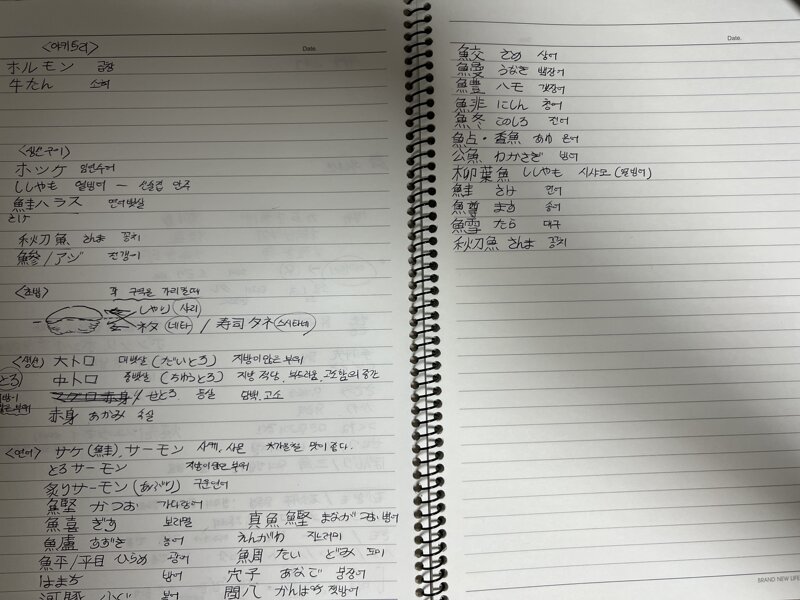 Date.
<야키토리>
ホルモン 곱창
牛たん 소혀
<생선구이>
ホッケ 임연수어
ししゃも 열빙어 – 술 안주
鮭ハラス 연어뱃살
さけ
秋刀魚 さんま 꽁치
鯵/アジ 전갱이
<초밥> 구역을 가리킬때
しゃり (샤리)
ネタ (네타) / 寿司タネ (스시타네)
<생선> 大トロ 대뱃살 (だいとろ) 지방이 많은 부위
とろ 中トロ 중뱃살 (ちゅうとろ) 지방 적당, 부드러움, 고소함의 중간
マグロ赤身/せとろ 등살 담백, 고소
赤身 あかみ 속살
<연어> サケ(鮭), サーモン 사케, 사몬 차가울 맛이 좋다.
とろサーモン 지방이 많은 부위
炙りサーモン (あぶり) 구운연어
鰹 かつお 가다랑어
鱚 ぎす 보리멸 真魚鰹 まながつお 병어
鱸 すずき 농어 えんがわ 지느러미
鮃/平目 ひらめ 광어 鯛 たい どみ 도미
はまち 방어 穴子 あなご 붕장어
河豚 ふぐ 복어 間八 かんぱち 잿방어
Date.
鮫 さめ 상어
鰻 うなぎ 뱀장어
鱧 ハモ 갯장어
鯡 にしん 청어
鮗 このしろ 전어
鮎・香魚 あゆ 은어
公魚 わかさぎ 빙어
柳葉魚 ししゃも 시샤모 (열빙어)
鮭 さけ 연어
鱒 ます 송어
鱈 たら 대구
秋刀魚 さんま 꽁치
BRAND NEW LIFE